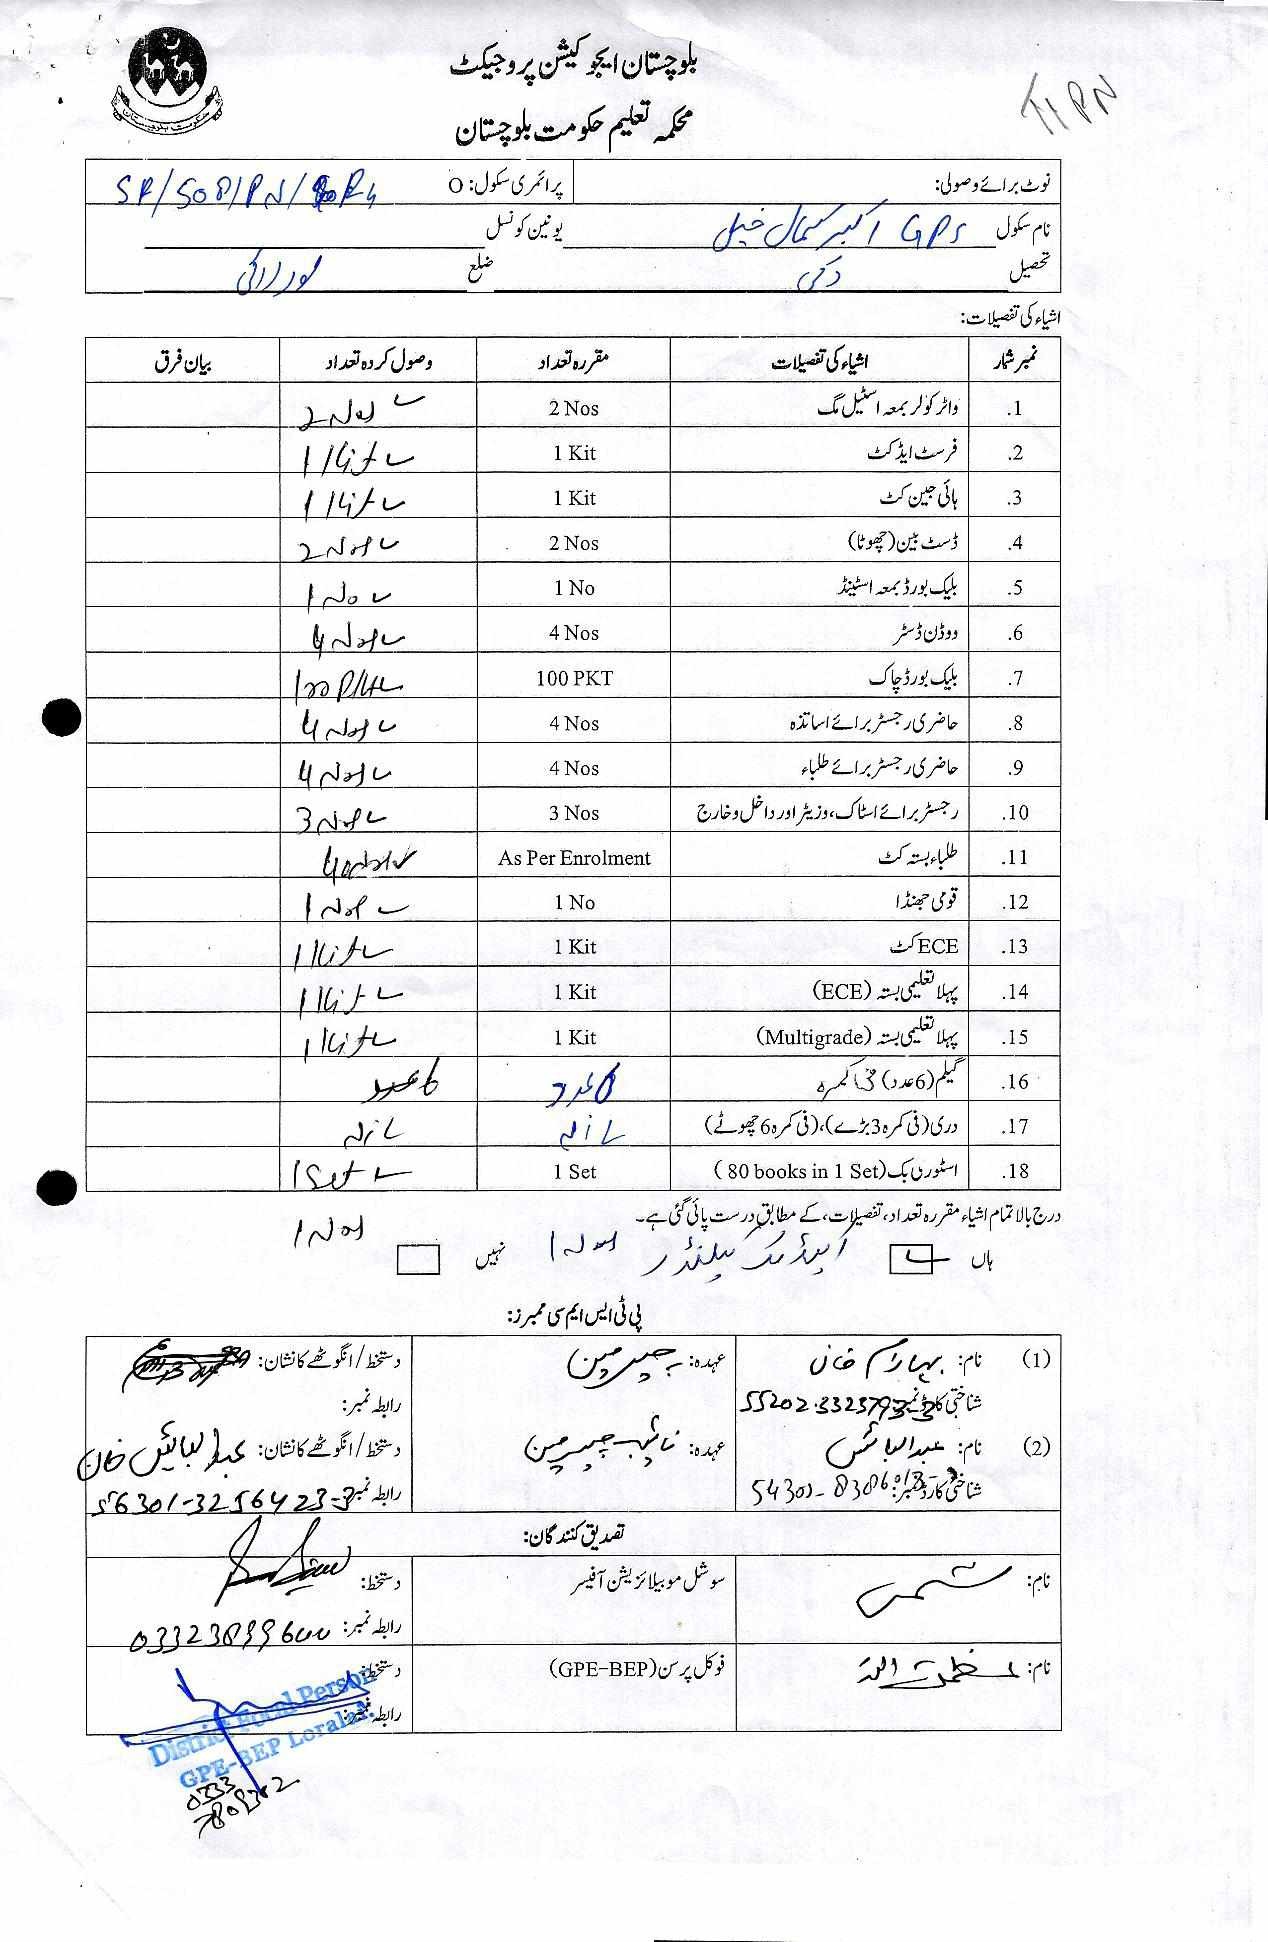 بلوچستان ایجوکیشن پروجیکٹ
محکمہ تعلیم حکومت بلوچستان
حکومت بلوچستان
نوٹ برائے وصولی: پرائمری سکول: O
نام سکول GPS اکبر کمال خیل یونین کونسل
تحصیل دکی ضلع لورالائی
اشیاء کی تفصیلات:
نمبر شمار اشیاء کی تفصیلات مقررہ تعداد وصول کردہ تعداد بیان فرق
1. واٹر کولر بمعہ اسٹیل مگ 2 Nos 2 Nos
2. فرسٹ ایڈ کٹ 1 Kit 1 Kit
3. ہائی جین کٹ 1 Kit 1 Kit
4. ڈسٹ بین (چھوٹا) 2 Nos 2 Nos
5. بلیک بورڈ بمعہ اسٹینڈ 1 No 1 No
6. ووڈن ڈسٹر 4 Nos 4 Nos
7. بلیک بورڈ چاک 100 PKT 100 Pkt
8. حاضری رجسٹر برائے اساتذہ 4 Nos 4 Nos
9. حاضری رجسٹر برائے طلباء 4 Nos 4 Nos
10. رجسٹر برائے اسٹاک، وزیٹر اور داخل و خارج 3 Nos 3 Nos
11. طلباء بستہ کٹ As Per Enrolment
12. قومی جھنڈا 1 No 1 Nos
13. ECE کٹ 1 Kit 1 Kit
14. پہلا تعلیمی بستہ (ECE) 1 Kit 1 Kit
15. پہلا تعلیمی بستہ (Multigrade) 1 Kit 1 Kit
16. گیلم (6 عدد) فی کمرہ 6 عدد 6 عدد
17. دری (فی کمرہ 3 بڑے)، (فی کمرہ 6 چھوٹے)
18. اسٹوری بک (80 books in 1 Set) 1 Set 1 Set
درج بالا تمام اشیاء مقررہ تعداد، تفصیلات، کے مطابق درست پائی گئی ہے۔
1 Nos
ہاں کیلنڈر 1 Nos نہیں
پی ٹی ایس ایم سی ممبرز:
(1) نام: بہرام خان عہدہ: چیئرمین دستخط/انگوٹھے کا نشان:
شناختی کارڈ نمبر رابطہ نمبر:
(2) نام: عہدہ: نائب چیئرمین دستخط/انگوٹھے کا نشان:
شناختی کارڈ نمبر: رابطہ نمبر 56301-3256423-3
تصدیق کنندگان:
نام: شمس سوشل موبیلائزیشن آفیسر دستخط:
رابطہ نمبر: 03323899600
نام: عظمت اللہ فوکل پرسن (GPE-BEP) دستخط:
رابطہ نمبر:
District Focal Person
GPE-BEP Loralai.
0333